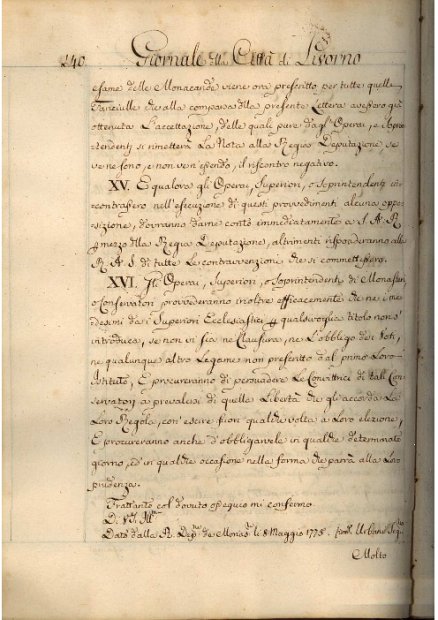 240 Giornale della Città di Livorno
esame delle Monacande viene ora prescritto per tutte quelle
Fanciulle che alla comparsa della presente Lettera avessero già
ottenuta l'accettazione, delle quali pure dagl' Operai, e Sopra
tendenti si rimetterà la Nota alla Regia Deputazione se
ve ne sono, e non ven'essendo, il riscontro negativo.
XV. E qualora gli Operai, Superiori, o Soprintendenti in
contrassero nell'esecuzione di questi provvedimenti alcuna oppo
sizione, dovranno darne conto immediatamente a S.A.R.
mezzo della Regia Deputazione, altrimenti risponderanno alla
R.A.S. di tutte le contravvenzioni che si commettessero.
XVI. Gli Operai, Superiori, o Soprintendenti di Monasteri,
o Conservatori provvederanno inoltre efficacemente che nei me
desimi dai Superiori Ecclesiastici qualsivoglia titolo non s'
introduca, se non vi sia ne Clausura, ne l'obbligo dei Voti,
ne qualunque altro Legame non prescritto dal primo Loro
Istituto, E procureranno di persuadere le Convittrici di tali Con
servatori a prevalersi di quella Libertà che gli accorda la
Loro Regola, con'escire fuori qualche volta a Loro elezione,
E procureranno anche d'obbligarvele in qualche determinato
giorno, ed in qualche occasione nella forma che parrà alla Loro
prudenza.
Frattanto col dovuto ossequio mi confermo
D. V. Ill.
Data dalla R. Dep. de Monas. li 8 Maggio 1775. Urbano
Molto